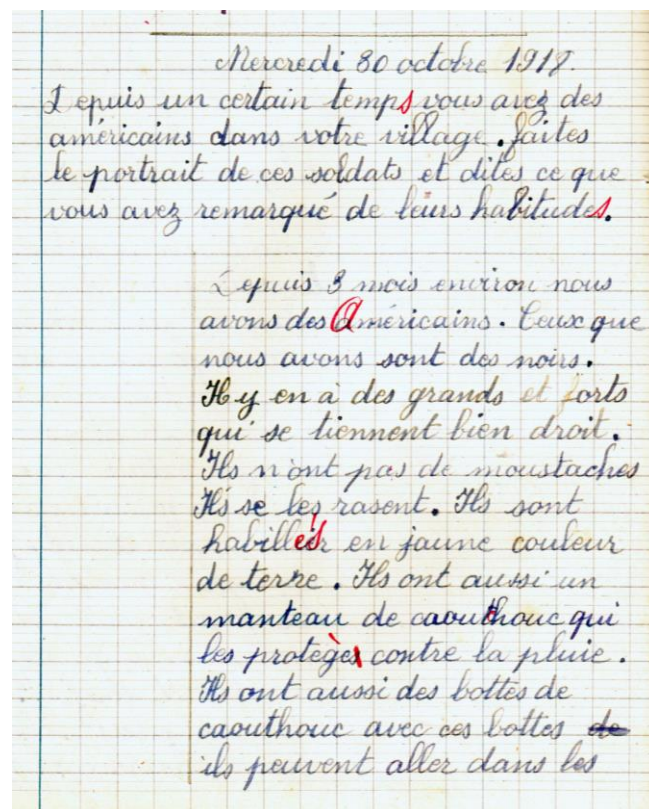 Mercredi 30 octobre 1918.
Depuis un certain temps vous avez des
américains dans votre village. faites
le portrait de ces soldats et dites ce que
vous avez remarqué de leurs habitudes.
Depuis 3 mois environ nous
avons des Américains. Ceux que
nous avons sont des noirs.
Il y en à des grands et forts
qui se tiennent bien droit.
Ils n'ont pas de moustaches
Ils se les rasent. Ils sont
habillés en jaune couleur
de terre. Ils ont aussi un
manteau de caouthouc qui
les protège contre la pluie.
Ils ont aussi des bottes de
caouthouc avec ces bottes de
ils peuvent aller dans les